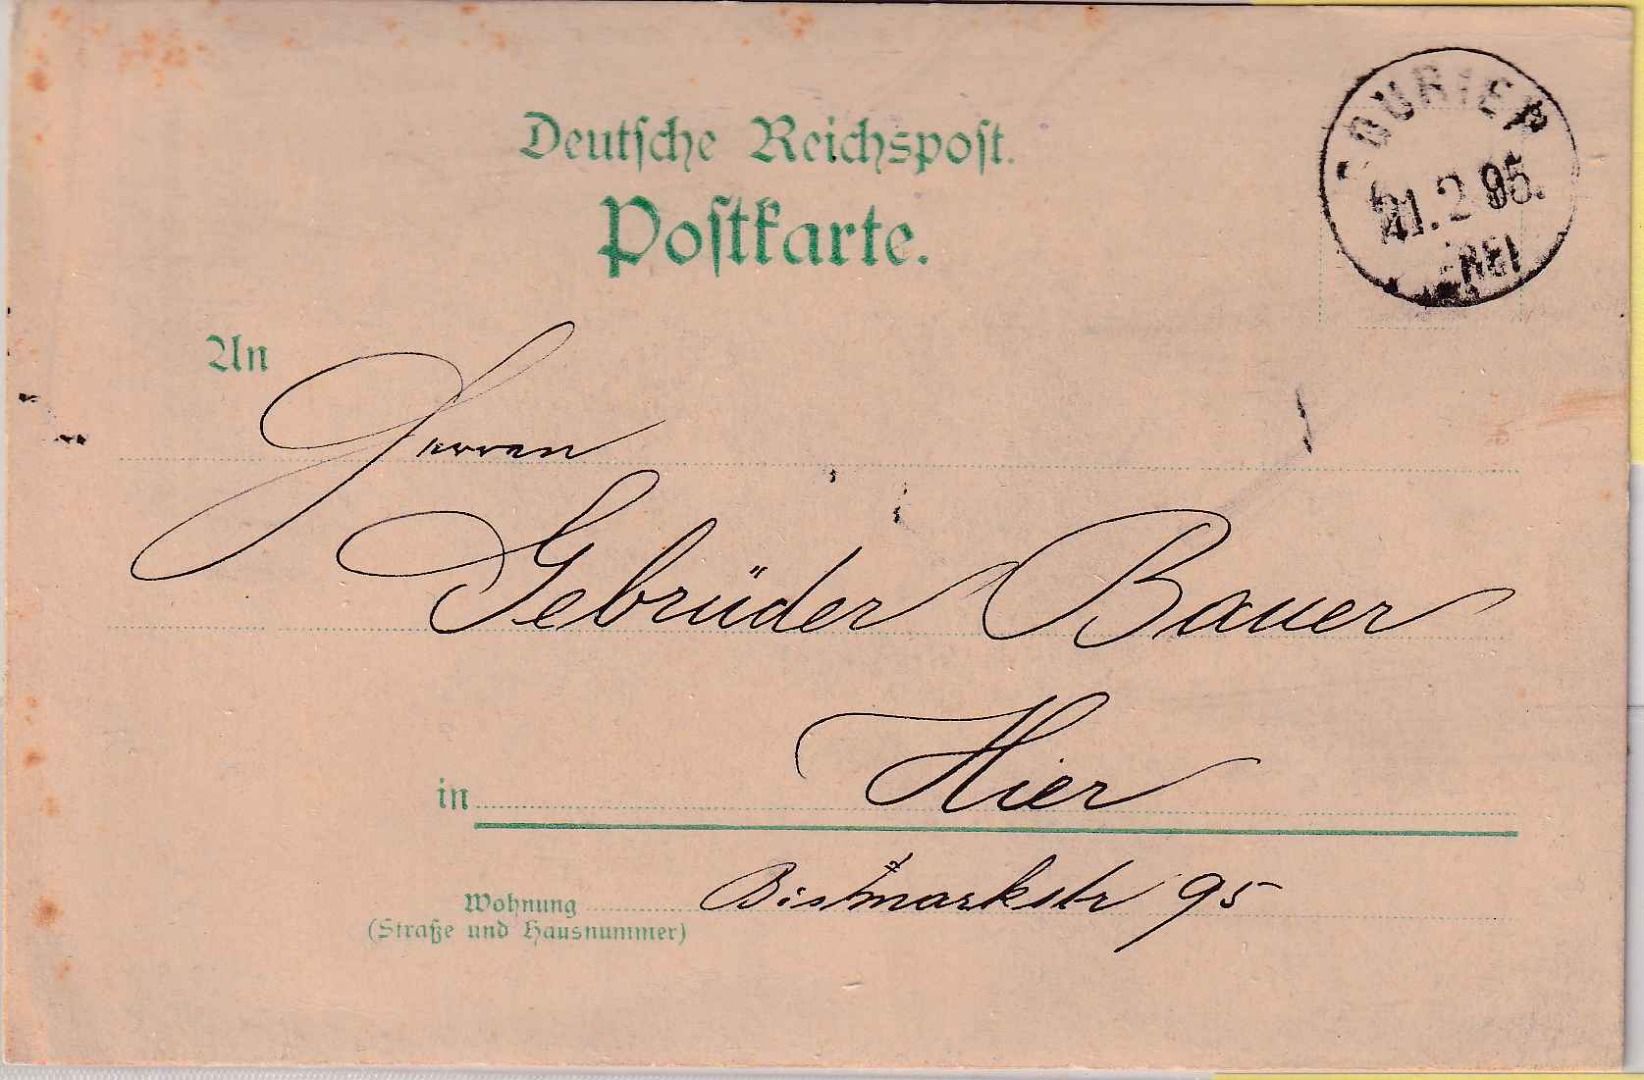 Deutsche Reichspost.
Postkarte.
COURIER
21.2.95.
An
Herren
Gebrüder Bauer
in Hier
Wohnung Bismarkstr 95
(Straße und Hausnummer)